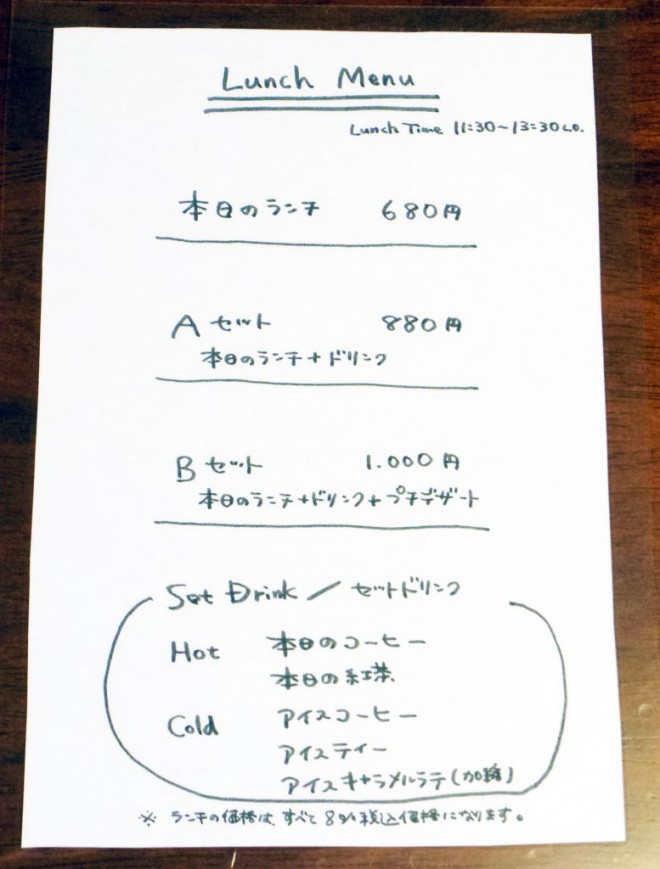 Lunch Menu
Lunch Time 11:30~13:30 L.O.
本日のランチ 680円
Aセット 880円
本日のランチ+ドリンク
Bセット 1.000円
本日のランチ+ドリンク+プチデザート
Set Drink / セットドリンク
Hot 本日のコーヒー
本日の紅茶
Cold アイスコーヒー
アイスティー
アイスキャラメルラテ(加糖)
※ ランチの価格は、すべて8%税込価格になります。